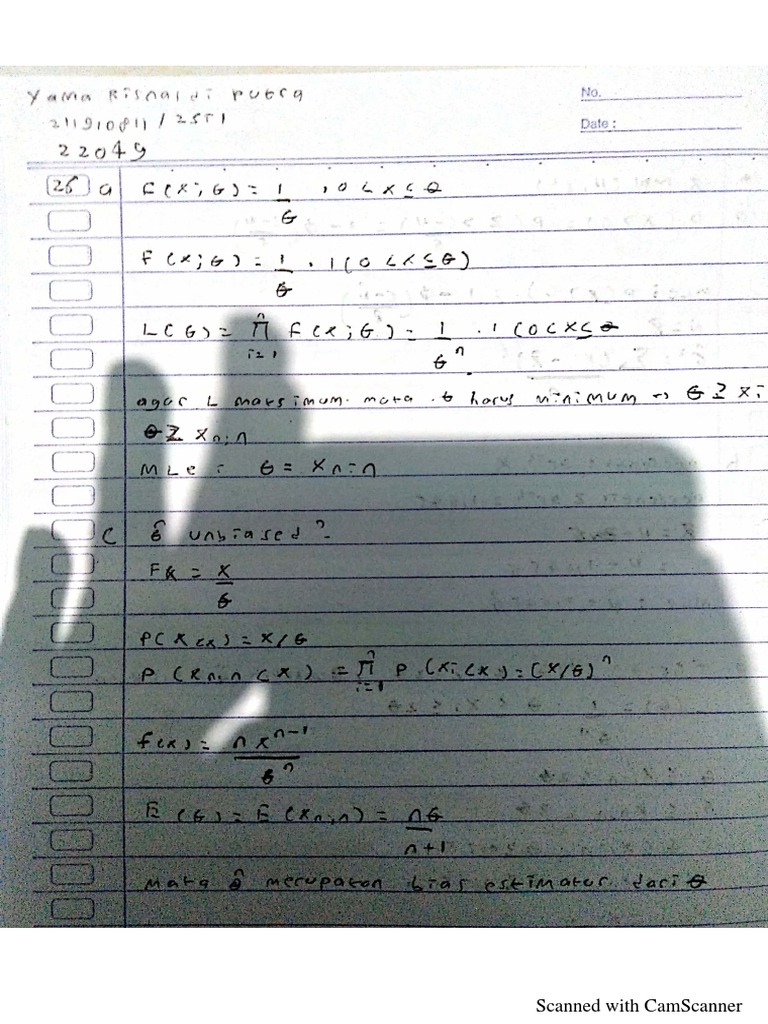 Yama Risnaldi Putra
No.
211910811 / 2SS1
Date :
22049
25 a f(x;θ) = 1/θ , 0 < x ≤ θ
f(x;θ) = 1/θ . 1(0 < x ≤ θ)
L(θ) = ∏ i=1 n f(x;θ) = 1/θ^n . 1(0 < x ≤ θ
agar L maksimum maka θ harus minimum → θ ≥ xi
θ ≥ Xn:n
MLE : θ = Xn:n
C θ̂ unbiased?
Fx = x/θ
P(X<x) = x/θ
P(Xn:n < x) = ∏ i=1 n P(Xi < x) = (x/θ)^n
f(x) = n x^(n-1) / θ^n
E(θ) = E(Xn:n) = nθ / n+1
maka θ̂ merupakan bias estimator dari θ
Scanned with CamScanner